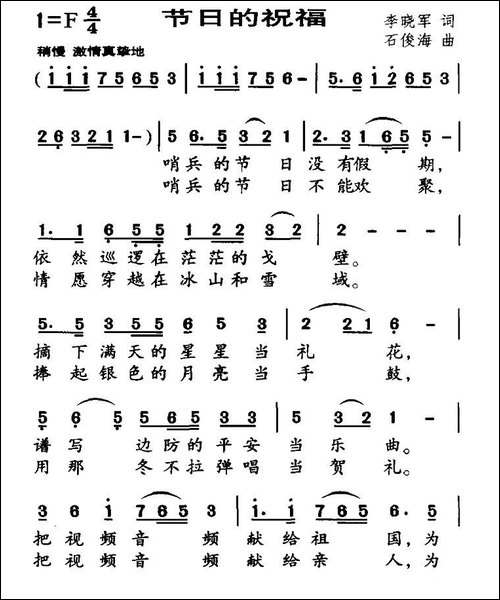 节日的祝福
1=F 4/4
李晓军 词
石俊海 曲
稍慢 激情真挚地
( i i i i 7 5 6 5 3 | i i i i 7 5 i - | 5. 6 i 2 3 2 1 6 5 |
2 6 3 2 1 1 1 - ) | 5 6. 5 3 2 1 | 2. 3 1 6 5 5 - |
哨兵 的节 日 没 有假 期,
哨兵 的节 日 不 能欢 聚,
1. 1 6 5 5 2 | 1 2 2 2 3 2 | 2 - - - |
依 然 巡 逻在 茫茫的 戈 壁。
情 愿 穿 越在 冰山和 雪 域。
5. 5 3 5 5 3 | 2. 1 2 3 3 | 2 2 2 1 6 - |
摘 下 满 天的 星 星 当 礼 花,
捧 起 银 色的 月 亮 当 手 鼓,
5 6 5 5 6 5 | 3 3 3 2 1 2 | 5 3 2 1 - |
谱 写 边 防的 平 安 当 乐 曲。
用 那 冬 不拉 弹 唱 当 贺 礼。
3 6 i 7 6 5 3 | i. i 7 6 5 6. 5 |
把 视 频 音 频 献 给 祖 国,为
把 视 频 音 频 献 给 亲 人,为